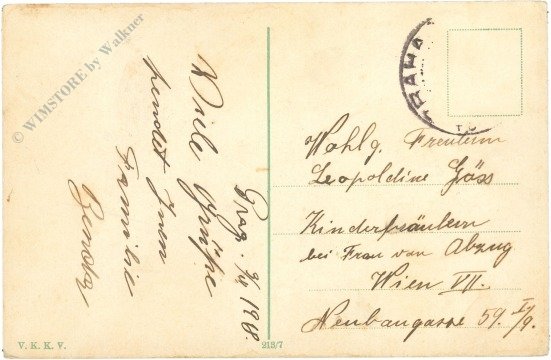 Prag. 9/4 1918.
Viele Grüße
sendet Ihnen
Familie
Benda
PRAHA
Wohlg. Freulein
Leopoldine Göss
Kinderfräulein
bei Frau von Abzug
Wien VII.
Neubaugasse 59. I/9.
V. K. K. V.
213/7
© WIMSTORE by Walkner